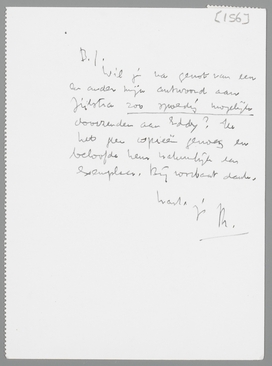 [156]
D.J.
Wil je na genot van een
en ander mijn antwoord aan
Zijlstra zoo spoedig mogelijk
doorzenden aan Eddy? Ik
heb geen copieën genoeg en
beloofde hem natuurlijk een
exemplaar. Bij voorbaat dank.
Hart. je
R.